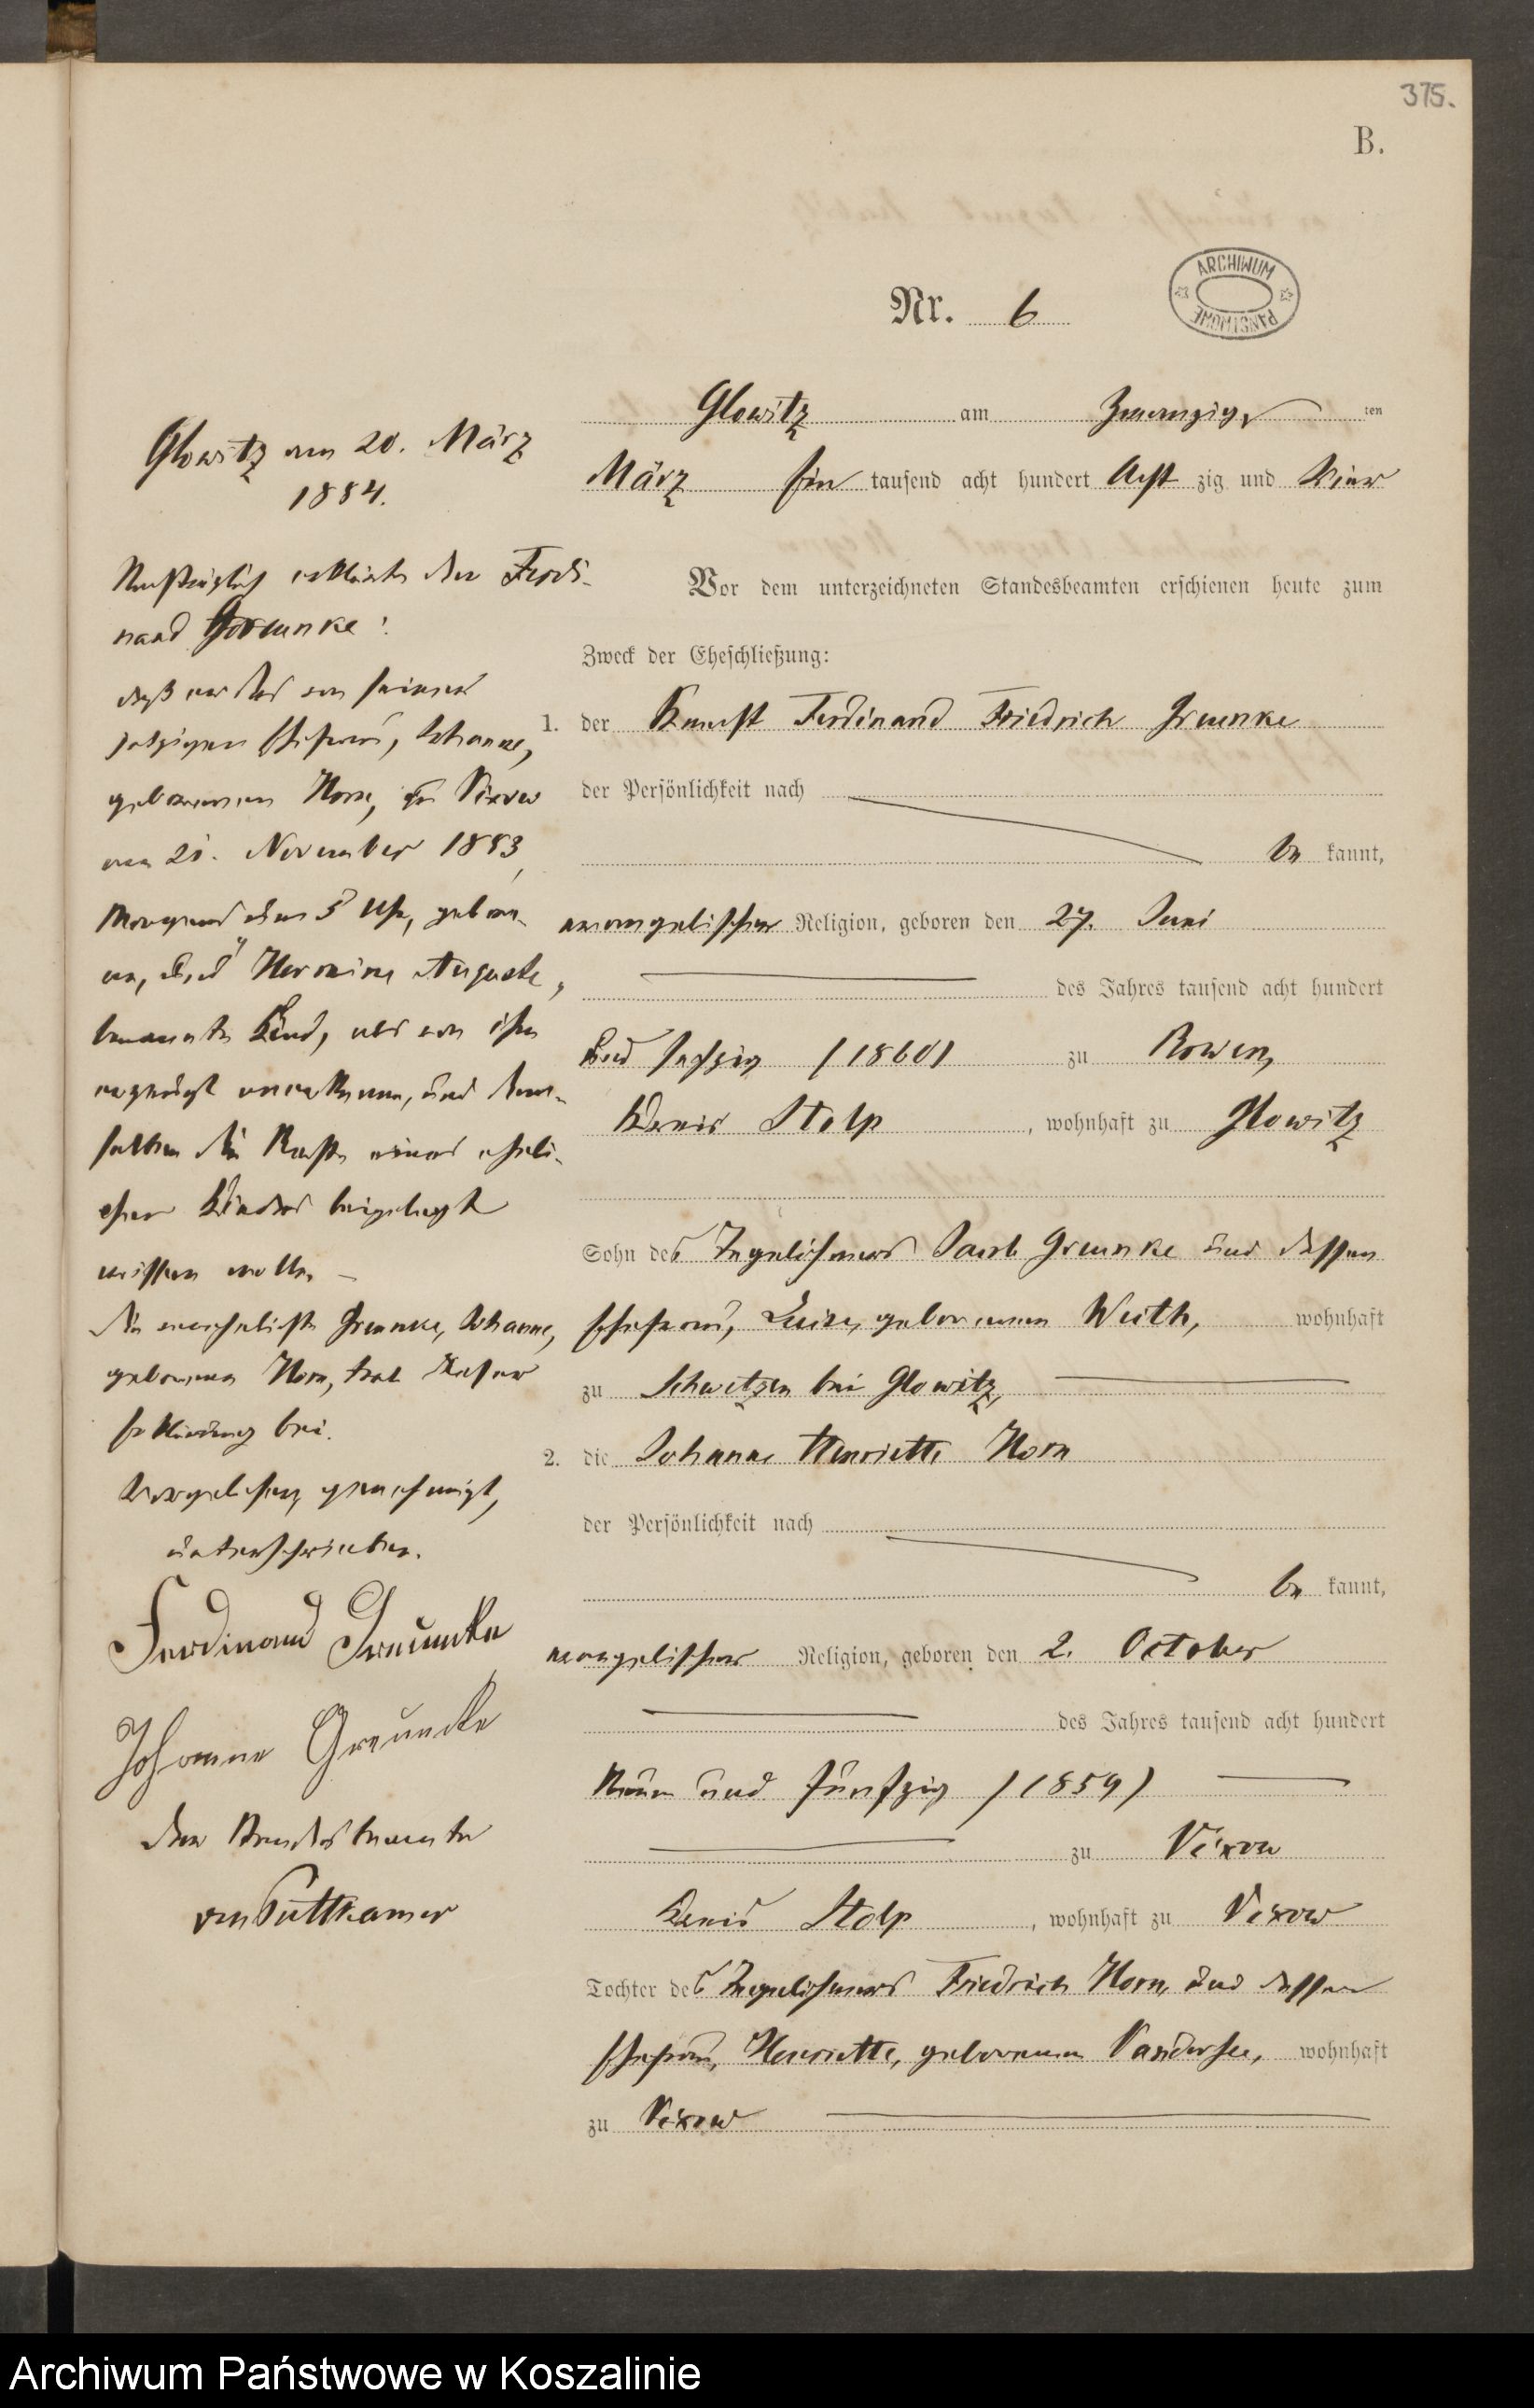 375.
B.
ARCHIWUM PAŃSTWOWE
Nr. 6
Glowitz am Zwanzig ten
März Ein tausend acht hundert Acht zig und Vier
Vor dem unterzeichneten Standesbeamten erschienen heute zum
Zweck der Eheschließung:
1. der Knecht Ferdinand Friedrich Greunke
der Persönlichkeit nach
be kannt,
evangelischer Religion, geboren den 27. Juni
des Jahres tausend acht hundert
und sechzig (1860) zu Rowen,
Kreis Stolp, wohnhaft zu Glowitz
Sohn des Tagelöhners Jacob Greunke und dessen
Ehefrau, Luise, geborenen Weith, wohnhaft
zu Schwetzen bei Glowitz,
2. die Johanne Henriette Horn
der Persönlichkeit nach
be kannt,
evangelischer Religion, geboren den 2. October
des Jahres tausend acht hundert
Neun und fünfzig (1859)
zu Vixow
Kreis Stolp, wohnhaft zu Vixow
Tochter des Tagelöhners Friedrich Horn, und dessen
Ehefrau, Henriette, geborenen Vandersee, wohnhaft
zu Vixow
Glowitz am 20. März
1884.
Nachträglich erklärte der Ferdi-
nand Greunke:
daß er das von seiner
jetzigen Ehefrau, Johanne,
geborenen Horn, zu Vixow
am 21. November 1883,
Morgens um 5 Uhr, gebore-
ne, Hermine Auguste,
benannte Kind, als von ihm
erzeugt anerkenne, und dem-
selben die Rechte eines eheli-
chen Kindes beigelegt
wissen wolle.
Die verehelichte Greunke, Johanne,
geborene Horn, trat dieser
Erklärung bei.
Vorgelesen, genehmigt,
unterschrieben.
Ferdinand Greunke
Johanne Greuncke
Der Standesbeamte
von Puttkamer
Archiwum Państwowe w Koszalinie